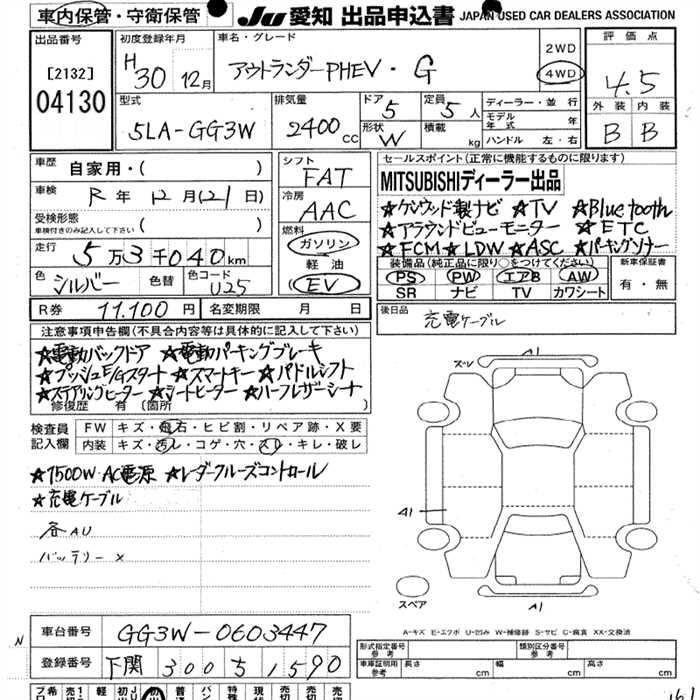 車内保管・守衛保管 JU 愛知 出品申込書 JAPAN USED CAR DEALERS ASSOCIATION
出品番号 初度登録年月 車名・グレード 評価点
[2132] H30 12月 アウトランダーPHEV・G 2WD 4WD 4.5
04130 型式 排気量 ドア 定員 ディーラー・並行 外装 内装
5LA-GG3W 2400cc 5 5人 モデル年式 B B
形状 W 積載 kg ハンドル 左・右
車歴 自家用・( ) シフト FAT セールスポイント(正常に機能するものに限ります)
車検 R 年 12月(21日) 冷房 AAC MITSUBISHIディーラー出品
受検形態 車検付きのみ記入して下さい ( ) ★ケンウッド製ナビ ★TV ★Bluetooth
燃料 ガソリン ★アラウンドビューモニター ★ETC
走行 5万3千040km 軽油 ★FCM ★LDW ★ASC ★パーキングソナー
色 シルバー 色替 色コード U25 EV 装備品(純正品に限り○をつけてください) 新車保証書
PS PW エアB AW 有・無
SR ナビ TV カワシート
R券 11.100円 名変期限 月 日 後日品 充電ケーブル
注意事項申告欄(不具合内容等は具体的に記入して下さい)
★電動バックドア ★電動パーキングブレーキ
★プッシュE/Gスタート ★スマートキー ★パドルシフト
★ステアリングヒーター ★シートヒーター ★ハーフレザーシート
修復歴 有 (箇所 )
検査員記入欄 FW キズ・飛石・ヒビ割・リペア跡・X要
内装 キズ・汚レ・コゲ・穴・スレ・キレ・破レ
★1500W AC電源 ★レーダークルーズコントロール
★充電ケーブル
各AU
バッテリーx
A1
A1
スペア
A1
A-キズ E-エクボ U-凹み W-補修跡 S-サビ C-腐食 XX-交換済
N 車台番号 GG3W-0603447
登録番号 下関 300 ち 1590
形式指定番号 参考 類別区分番号 参考
車庫証明用 参考 長さ cm 幅 cm 高さ cm